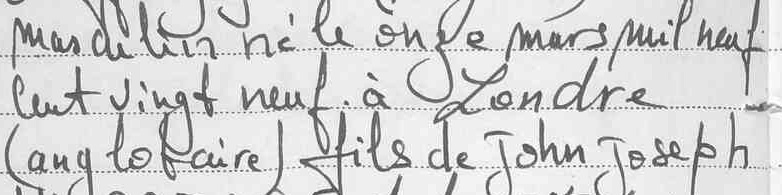 masculin né le onze mars mil neuf
cent vingt neuf. à Londre
(angloterre) fils de John Joseph